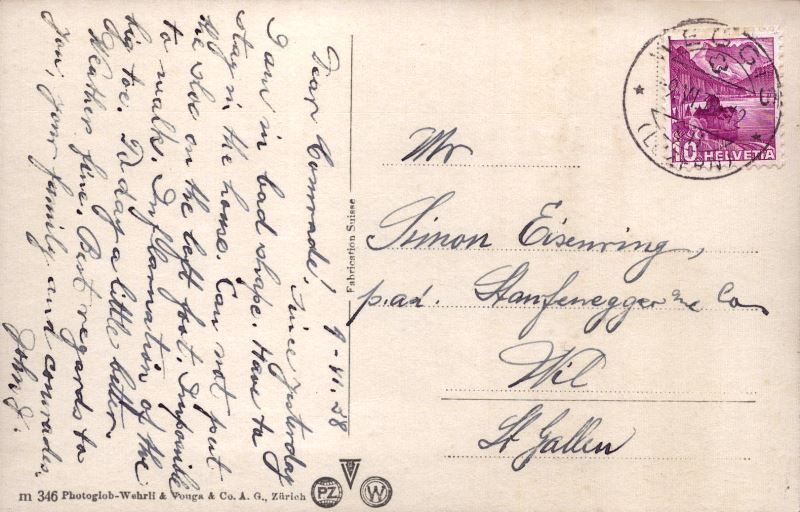 9-VI.38
Dear Comrade! Since yesterday
I am in bad shape. Have to
stay in the home. Can not put
the shoe on the left foot. Impossible
to walk. Inflamation of the
big toe. To day a little better.
Weather fine. Best regards to
you, your family and comrades.
John
Fabrication Suisse
WEGGIS
10 HELVETIA
Mr
Simon Eisenring,
p.ad. Stanfenegger & Co
Wil
St Gallen
m 346 Photoglob-Wehrli & Vouga & Co. A. G., Zürich
PZ
W